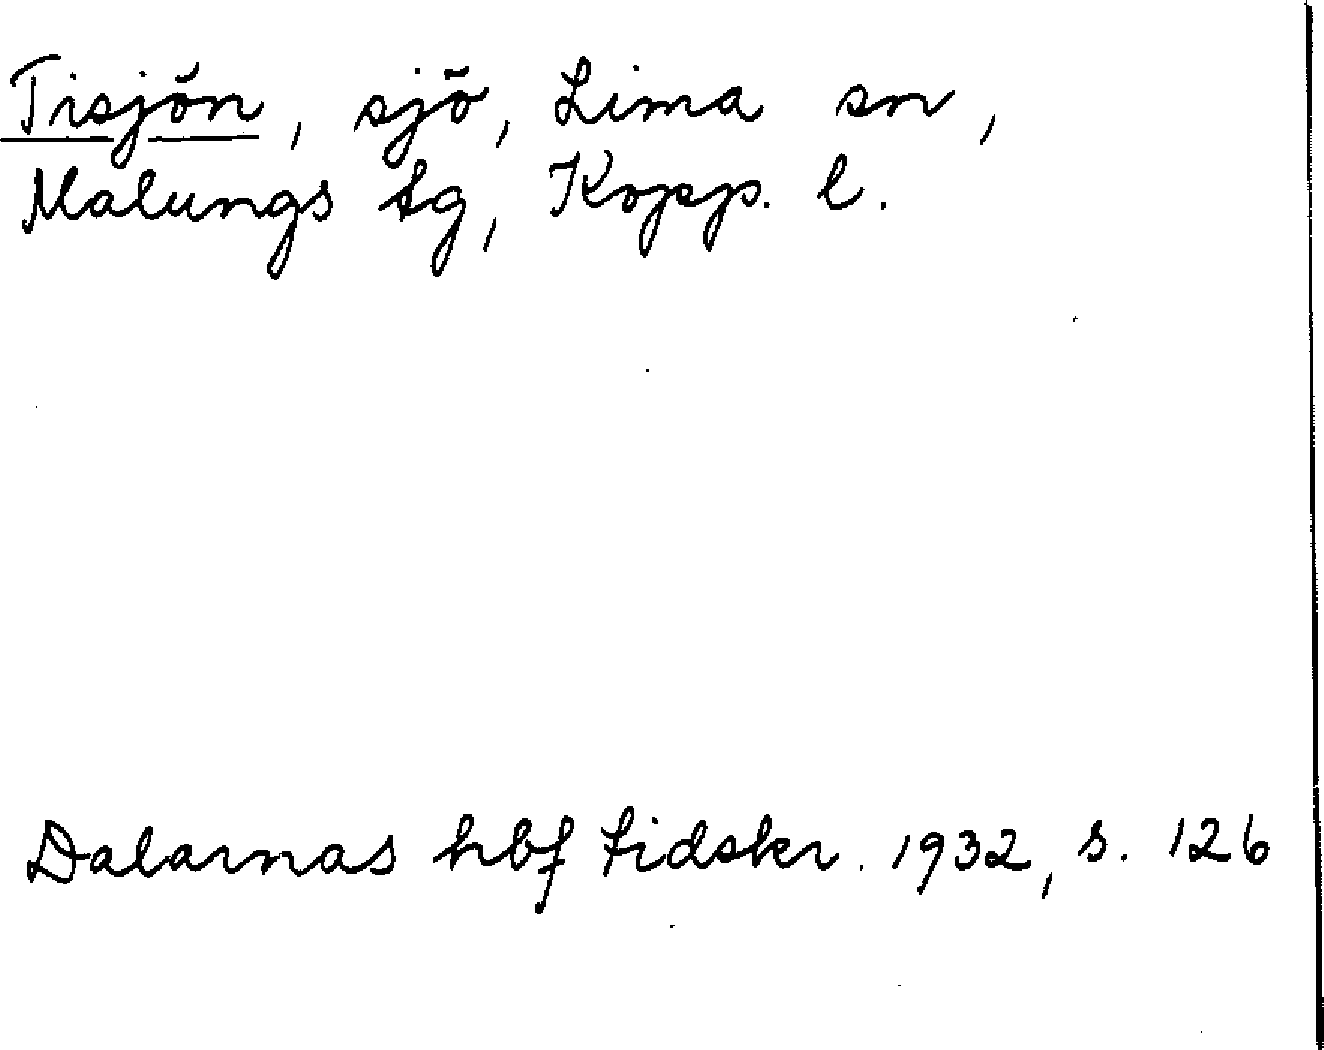 Tisjön, sjö, Lima sn,
Malungs tg, Kopp. l.
Dalarnas hbf tidskr. 1932, s. 126